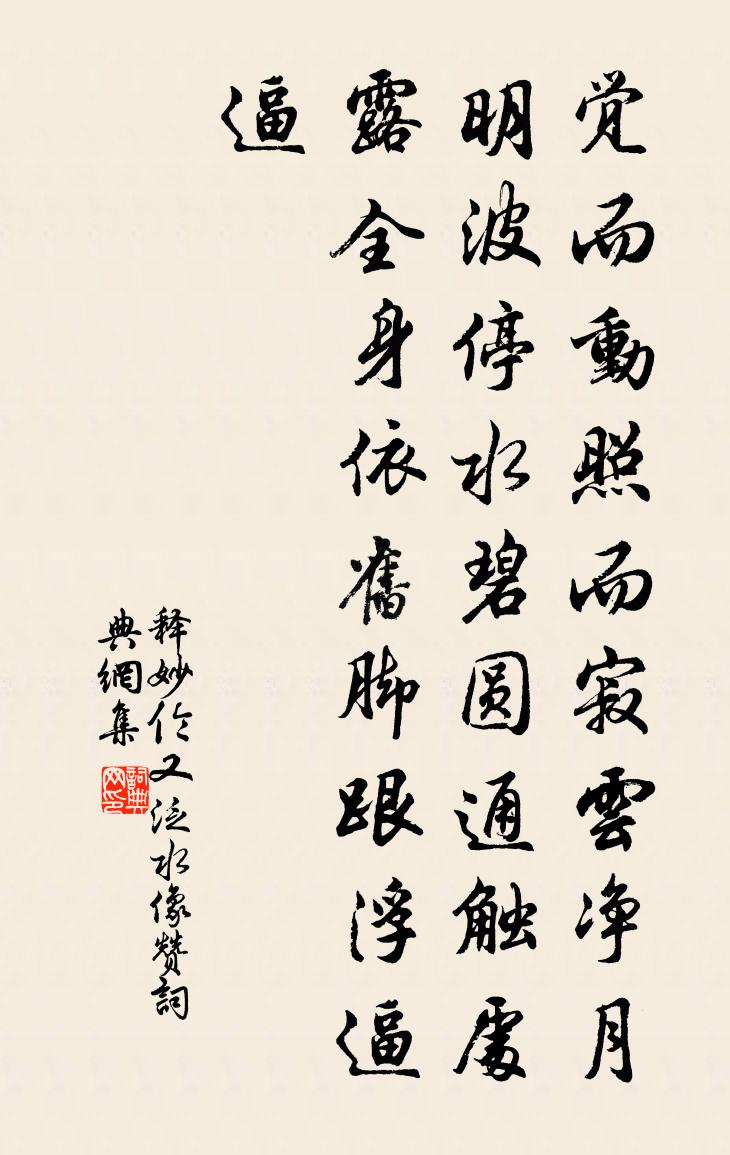 觉而動照而寂雲净月
明波停水碧圆通触處
露全身依舊脚跟浮逼
逼
释妙伦又泛水像赞詞
典網集
詞典网印